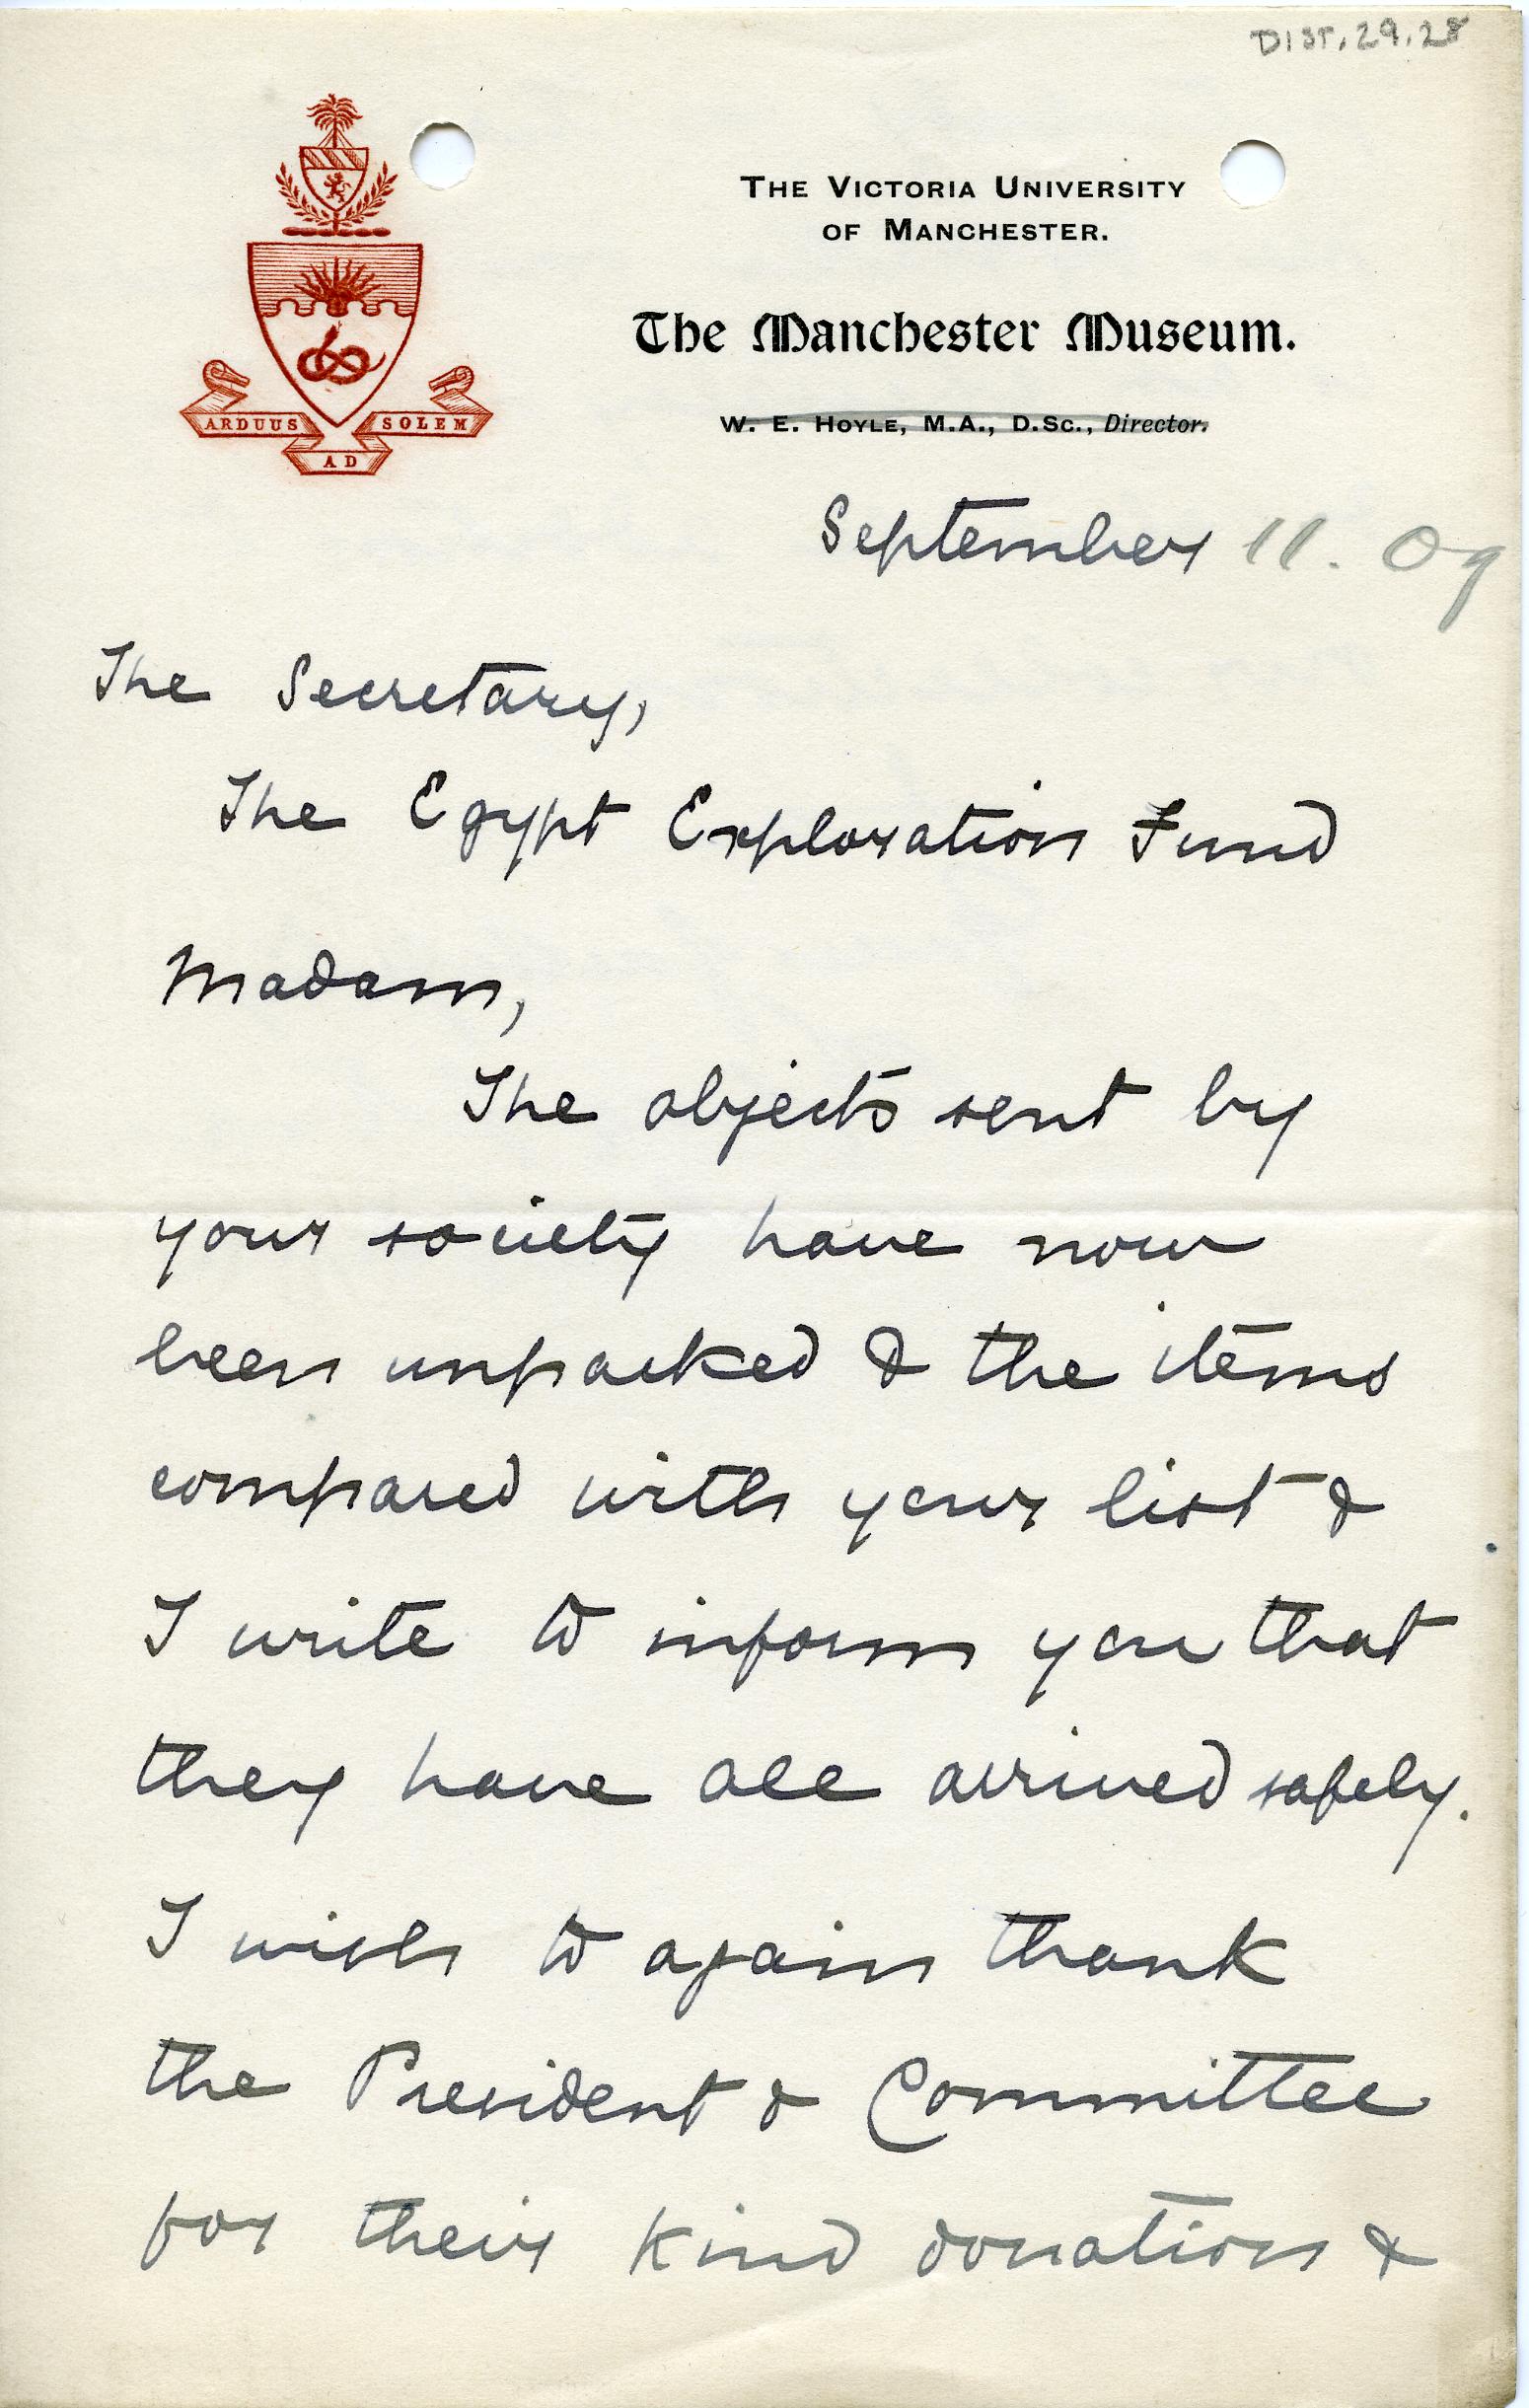 DIST.29.28
THE VICTORIA UNIVERSITY
OF MANCHESTER.
The Manchester Museum.
W. E. HOYLE, M.A., D.Sc., Director.
ARDUUS SOLEM
AD
September 11. 09
The Secretary,
The Egypt Exploration Fund
Madam,
The objects sent by
your society have now
been unpacked & the items
compared with your list &
I write to inform you that
they have all arrived safely.
I wish to again thank
the President & Committee
for their kind donation &